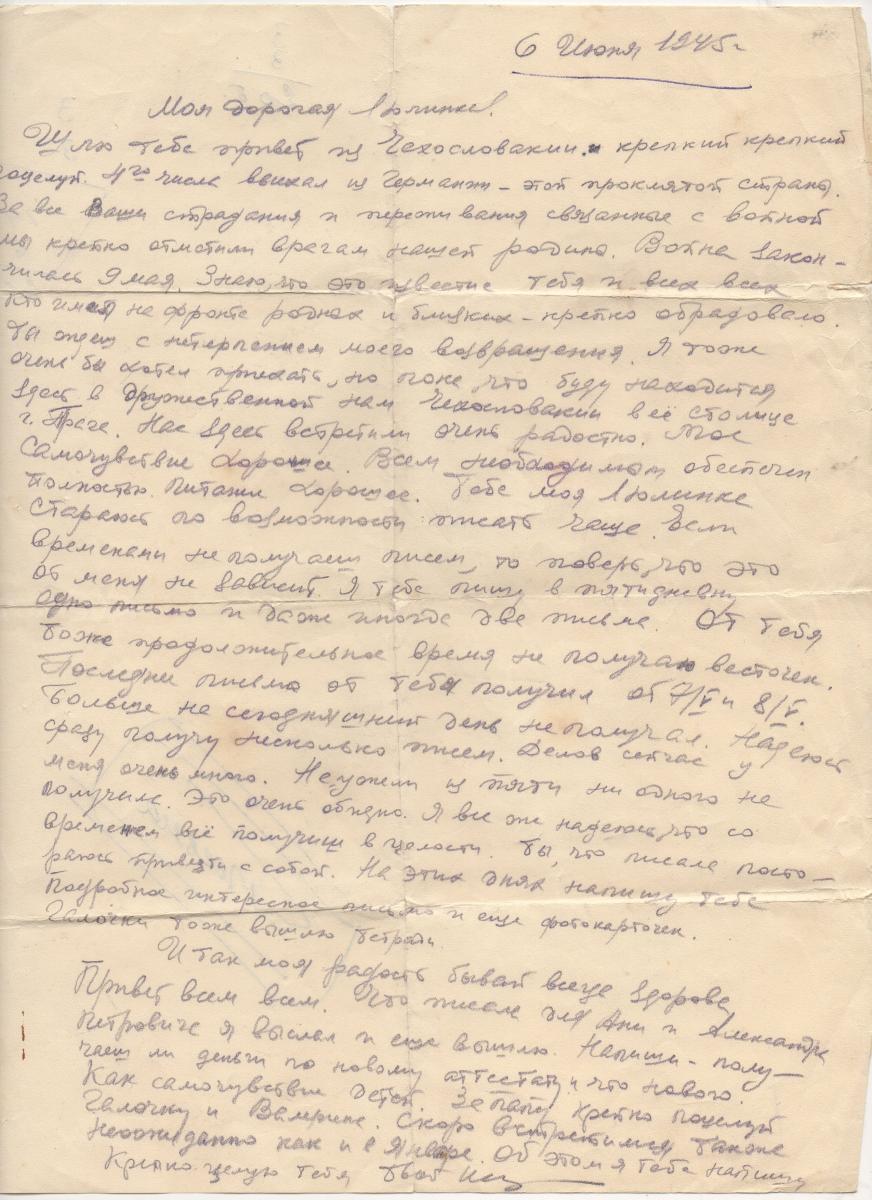 6 Июня 1945 г
Моя дорогая Люлинка!
Шлю тебе привет из Чехословакии и крепкий крепкий
поцелуй. 4го числа выехал из Германии – этой проклятой страны.
За все Ваши страдания и переживания связанные с войной
мы крепко отмстили врагам нашей родины. Война закон-
чилась 9 мая. Знаю, что это известие тебя и всех всех
кто имел на фронте родных и близких – крепко обрадовало.
Ты ждеш с нетерпением моего возвращения. Я тоже
очень бы хотел приехать, но пока, что буду находится
здесь в дружественной нам Чехословакии в её столице
г. Праге. Нас здесь встретили очень радостно. Мое
самочувствие хорошее. Всем необходимым обеспечен
полностью. Питание хорошее. Тебе моя Люлинка
стараюсь по возможности писать чаще. Если
временами не получаеш писем, то поверь, что это
от меня не зависит. Я тебе пишу в пятидневку
одно письмо и даже иногда два письма. От тебя
тоже продолжительное время не получаю весточек.
Последние письма от тебя получил от 7/V и 8/V.
Больше на сегодняшний день не получал. Надеюсь
сразу получу несколько писем. Делов сейчас у
меня очень много. Неужели из пяти ни одного не
получила. Это очень обидно. Я все же надеюсь, что со
временем всё получиш в целости. Ты, что писала поста-
раюсь привезти с собой. На этих днях напишу тебе
подробное интересное письмо и еще фотокарточек.
Галочки тоже вышлю тетради.
И так моя радость бывай всегда здорова
Привет всем всем. Что писала для Ани и Александра
Петровича я выслал и еще вышлю. Напиши – полу-
чаеш ли деньги по новому аттестату и что нового.
Как самочувствие детей. За папу крепко поцелуй
Галочку и Валерика. Скоро встретимся также
неожиданно как и в Январе. Об этом я тебе напишу
Крепко целую тебя твой